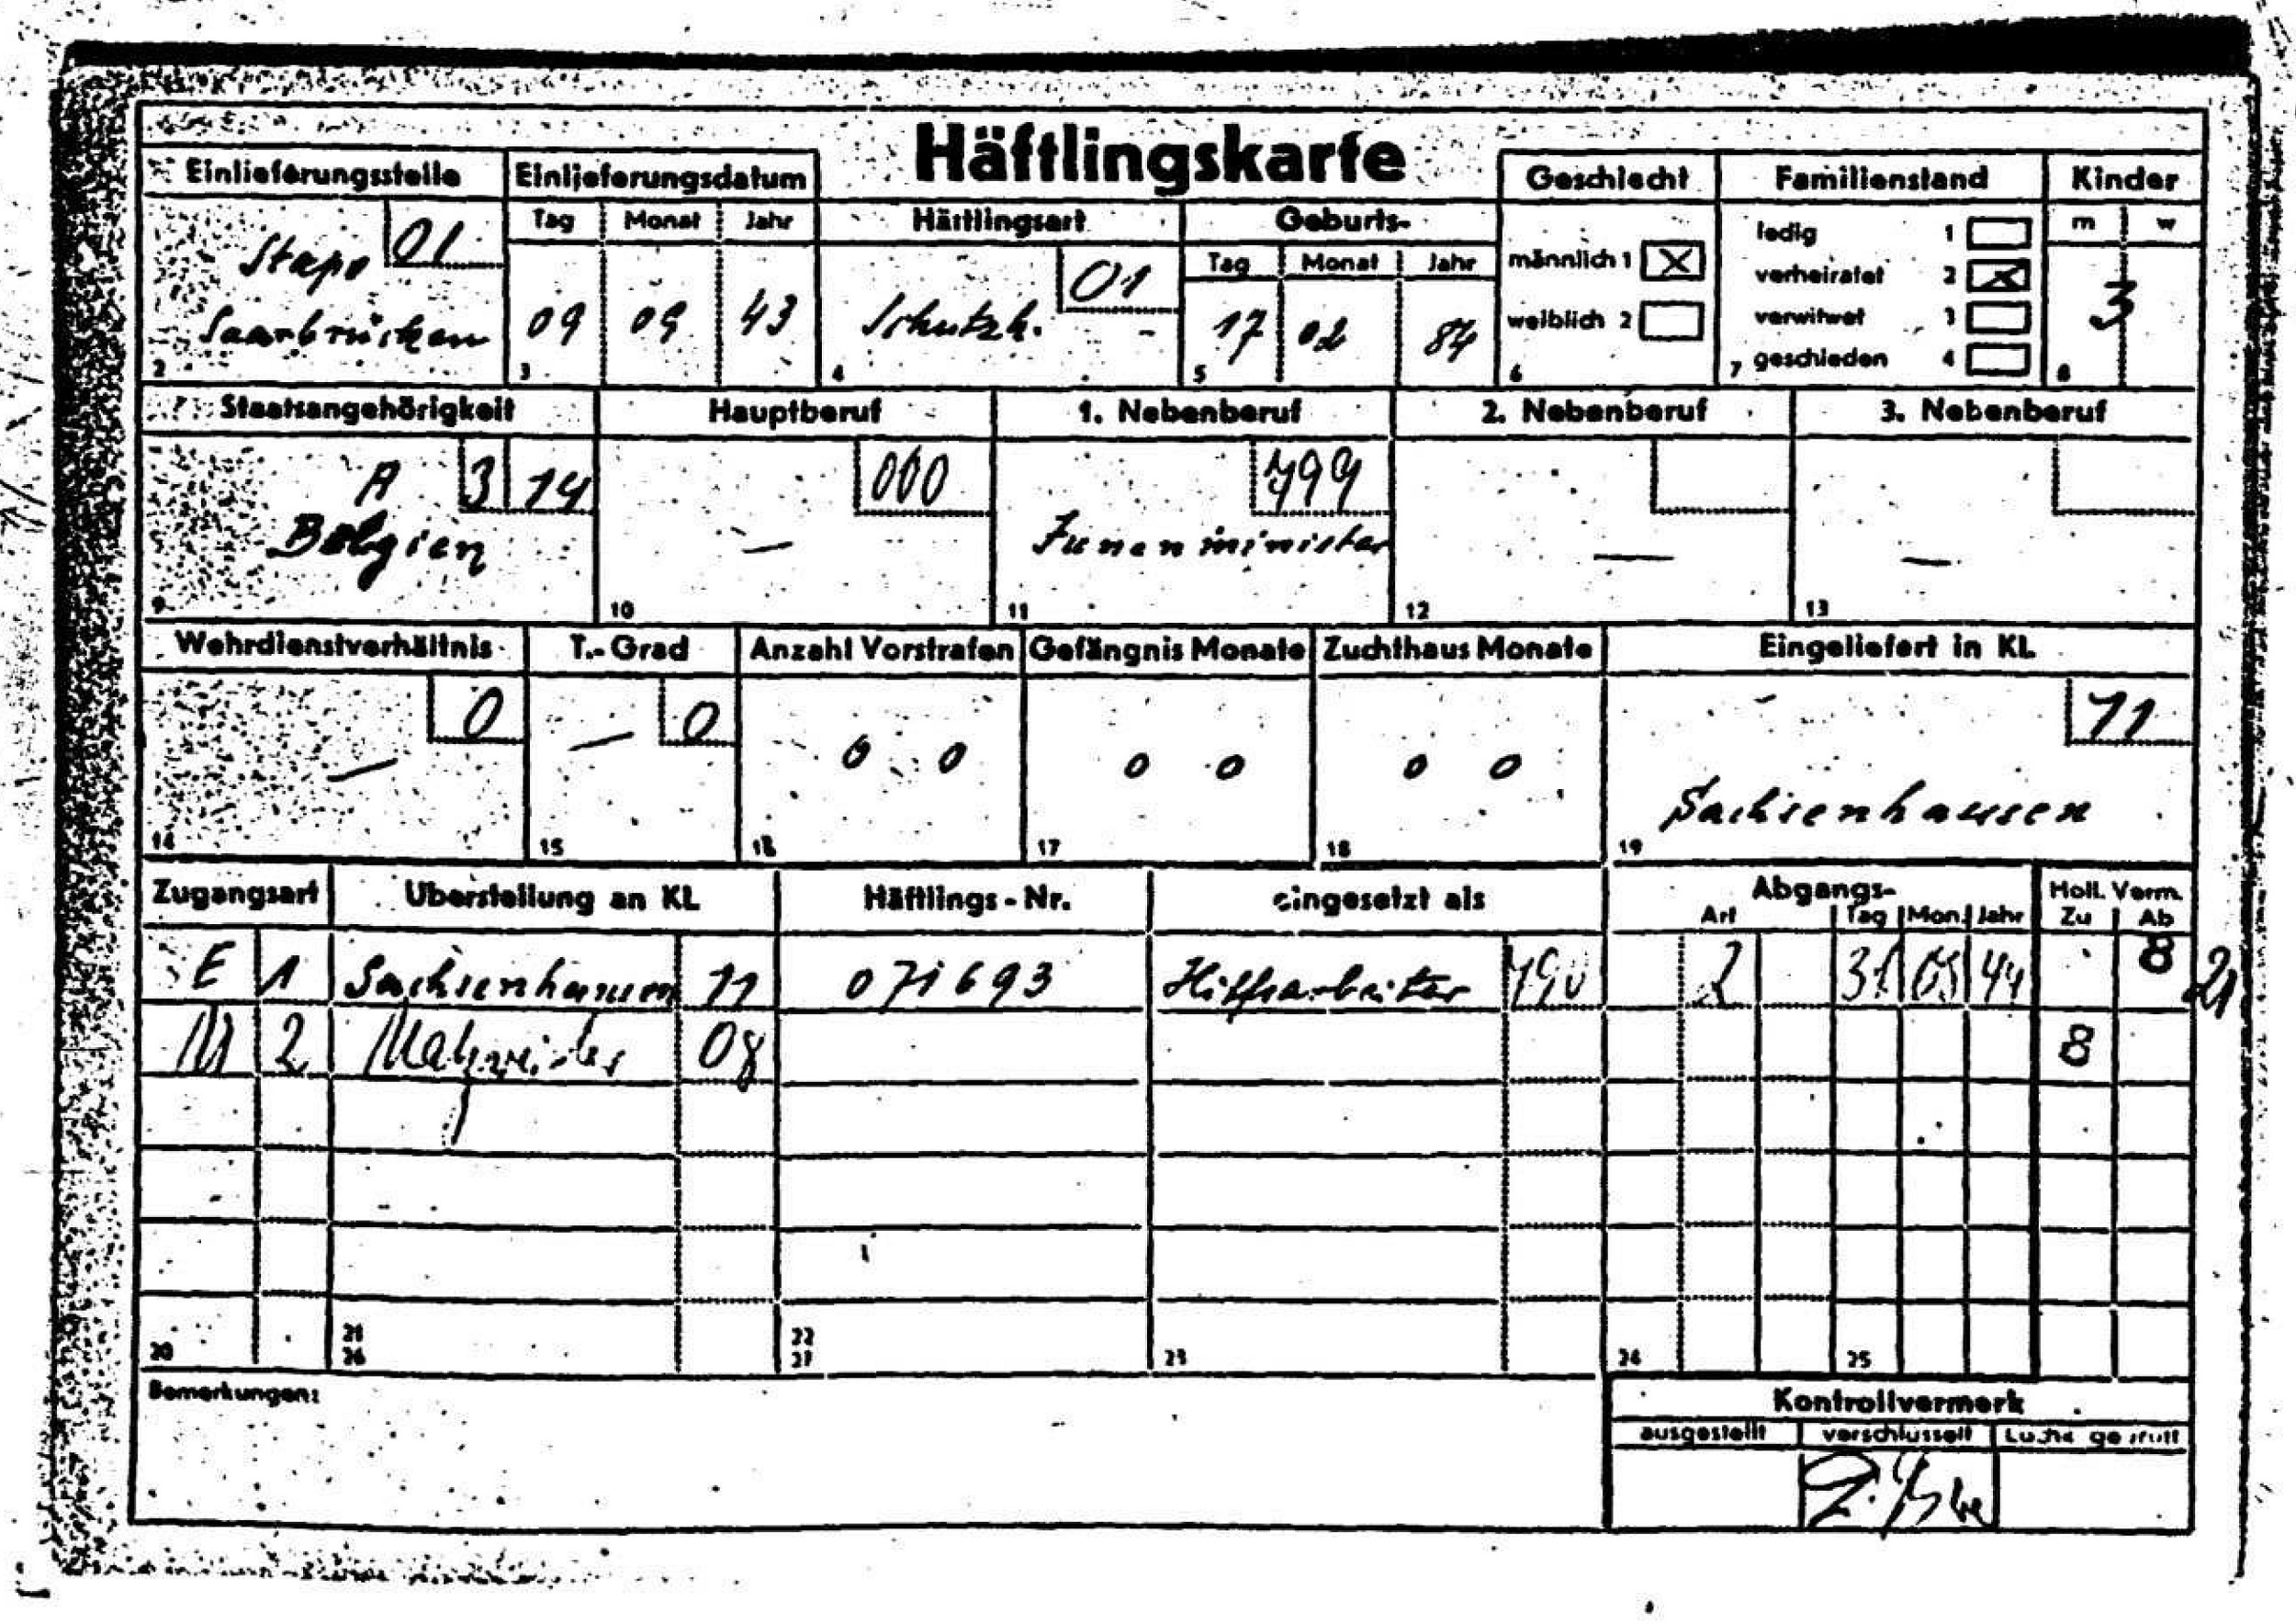 Häftlingskarte
Einlieferungsstelle
Stapo 01
Saarbrücken
2
Einlieferungsdatum
Tag Monat Jahr
09 09 43
3
Häftlingsart
01
Schutzh.
4
Geburts-
Tag Monat Jahr
17 02 84
5
Geschlecht
männlich 1 X
weiblich 2
6
Familienstand
ledig 1
verheiratet 2 X
verwitwet 3
geschieden 4
7
Kinder
m w
3
8
Staatsangehörigkeit
A 3 14
Belgien
9
Hauptberuf
000
—
10
1. Nebenberuf
799
Innenminister
11
2. Nebenberuf
—
12
3. Nebenberuf
—
13
Wehrdienstverhältnis
0
—
14
T.-Grad
— 0
15
Anzahl Vorstrafen
0 0
16
Gefängnis Monate
0 0
17
Zuchthaus Monate
0 0
18
Eingeliefert in KL
11
Sachsenhausen
19
Zugangsart Überstellung an KL Häftlings-Nr. eingesetzt als Abgangs- Holl. Verm.
Art Tag Mon. Jahr Zu Ab
E 1 Sachsenhausen 11 071693 Hilfsarbeiter 790 2 31 05 44 8 21
M 2 08 8
20 21 26 22 27 23 24 25
Bemerkungen:
Kontrollvermerk
ausgestellt verschlüsselt